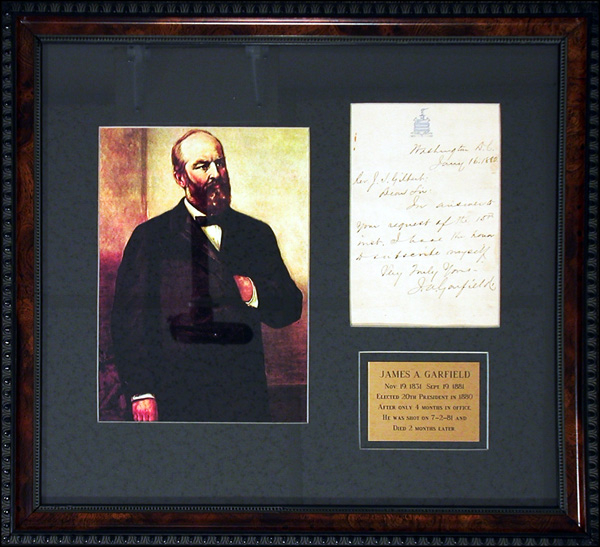 Washington D.C.
Jany 16. 188
Rev. J. S. Gilbert.
Dear Sir.
In answer to
your request of the 10th
inst. I have the honor
to subscribe myself
Very Truly Yours.
J. A. Garfield
JAMES A. GARFIELD
Nov. 19, 1831 - Sept. 19, 1881
Elected 20th President in 1880
After only 4 months in office,
He was shot on 7-2-81 and
Died 2 months later.